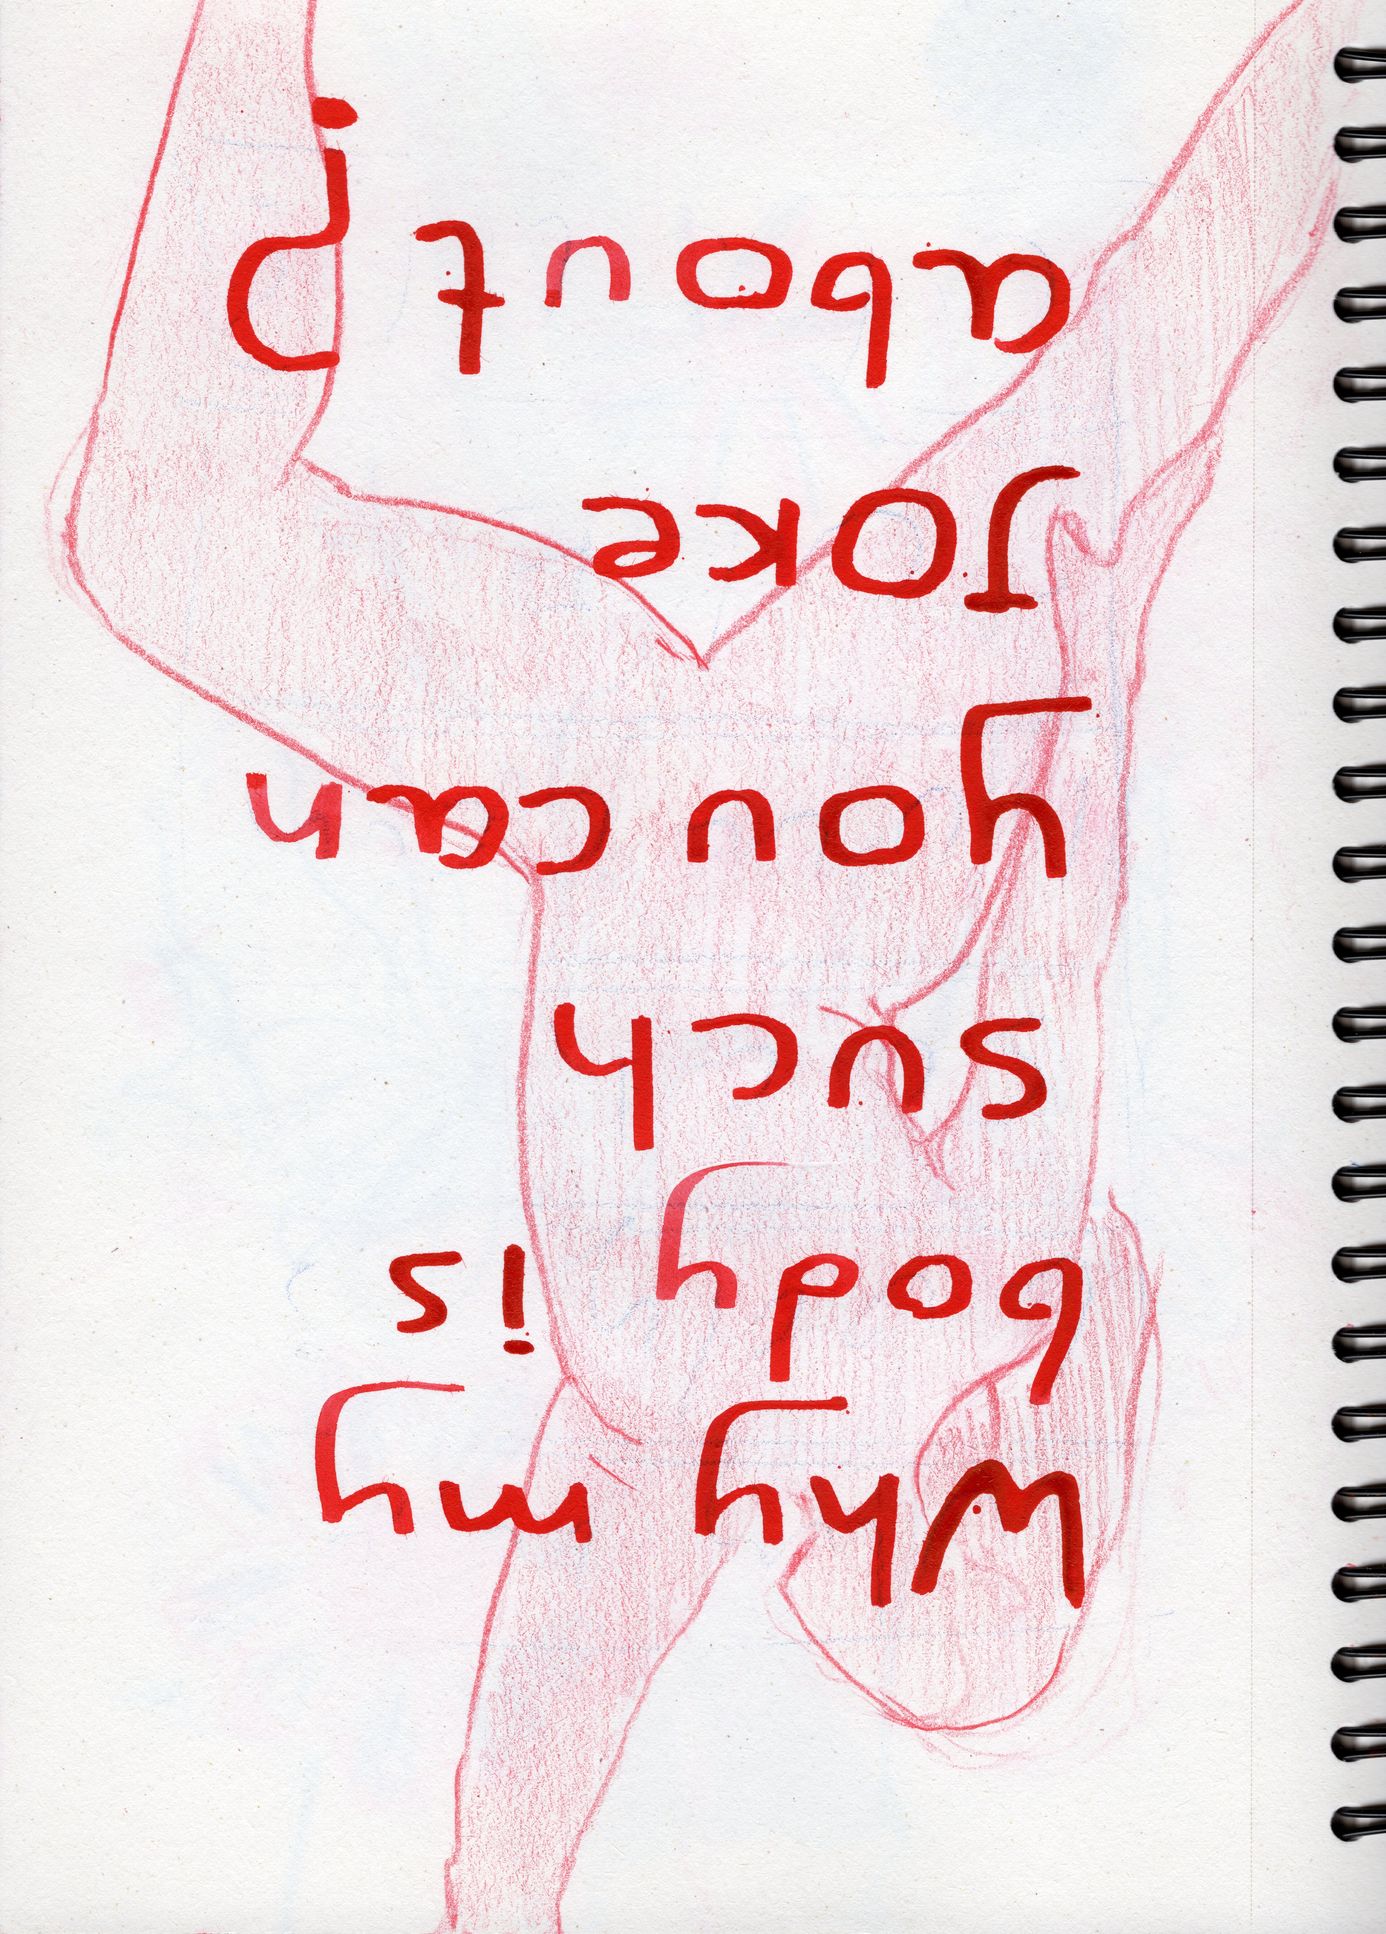 Why my
body is
such
you can
Joke
about ?